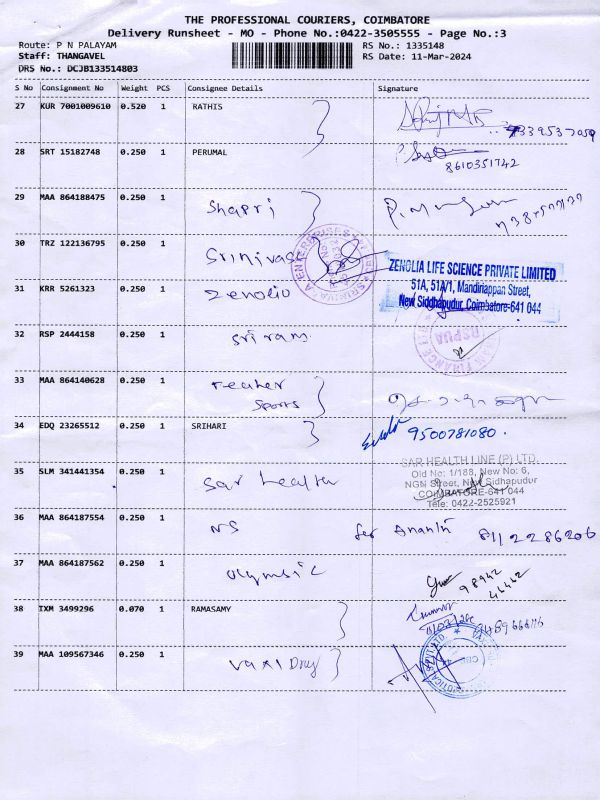 THE PROFESSIONAL COURIERS, COIMBATORE
Delivery Runsheet - MO - Phone No.:0422-3505555 - Page No.:3
Route: P N PALAYAM
RS No.: 1335148
Staff: THANGAVEL
RS Date: 11-Mar-2024
DRS No.: DCJB133514803
S No Consignment No Weight PCS Consignee Details Signature
27 KUR 7001009610 0.520 1 RATHIS
28 SRT 15182748 0.250 1 PERUMAL
8610351742
29 MAA 864188475 0.250 1 Shapri
30 TRZ 122136795 0.250 1 Srinivasa
31 KRR 5261323 0.250 1 Zenolio
ZENOLIA LIFE SCIENCE PRIVATE LIMITED
51A, 51A/1, Mandiriappan Street,
New Siddhapudur, Coimbatore-641 044
32 RSP 2444158 0.250 1 Sriram
RSPUA
33 MAA 864140628 0.250 1 Feather
Sports
34 EDQ 23265512 0.250 1 SRIHARI
9500781080.
35 SLM 341441354 0.250 1 Sar health
SAR HEALTH LINE (P) LTD.
Old No: 1/188, New No: 6,
NGN Street, New Sidhapudur
COIMBATORE-641 044
Tele: 0422-2525921
36 MAA 864187554 0.250 1 NS
for Ananth 8112286206
37 MAA 864187562 0.250 1 Olympic
98942
46462
38 IXM 3499296 0.070 1 RAMASAMY
39 MAA 109567346 0.250 1